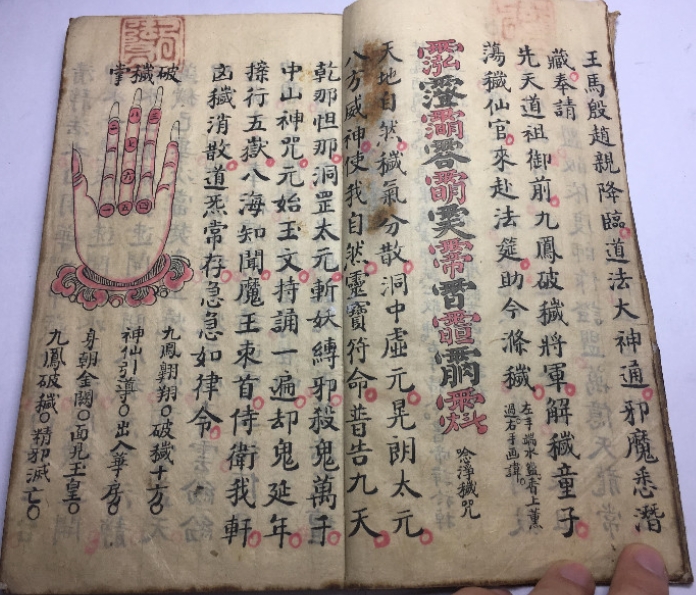 王馬殷趙親降臨道法大神通邪魔悉潛
藏奉請
先天道祖御前九鳳破穢將軍解穢童子
蕩穢仙官來赴法筵助今滌穢
左手端水盂香上薰
過右手画諱
唸淨穢咒
天地自然穢氣分散洞中虛元晃朗太元
八方威神使我自然靈寶符命普告九天
乾那怛那洞罡太元斬妖縛邪殺鬼萬千
中山神咒元始玉文持誦一遍却鬼延年
按行五嶽八海知聞魔王束首侍衛我軒
凶穢消散道炁常存急急如律令
破穢掌
九鳳翱翔〇破穢十方〇
神仙引導〇出入華房〇
身朝金闕〇面礼玉皇〇
九鳳破穢〇精邪滅亡〇